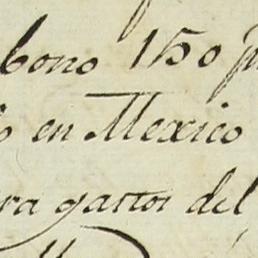 bono 150 p
en Mexico
ra gastos del